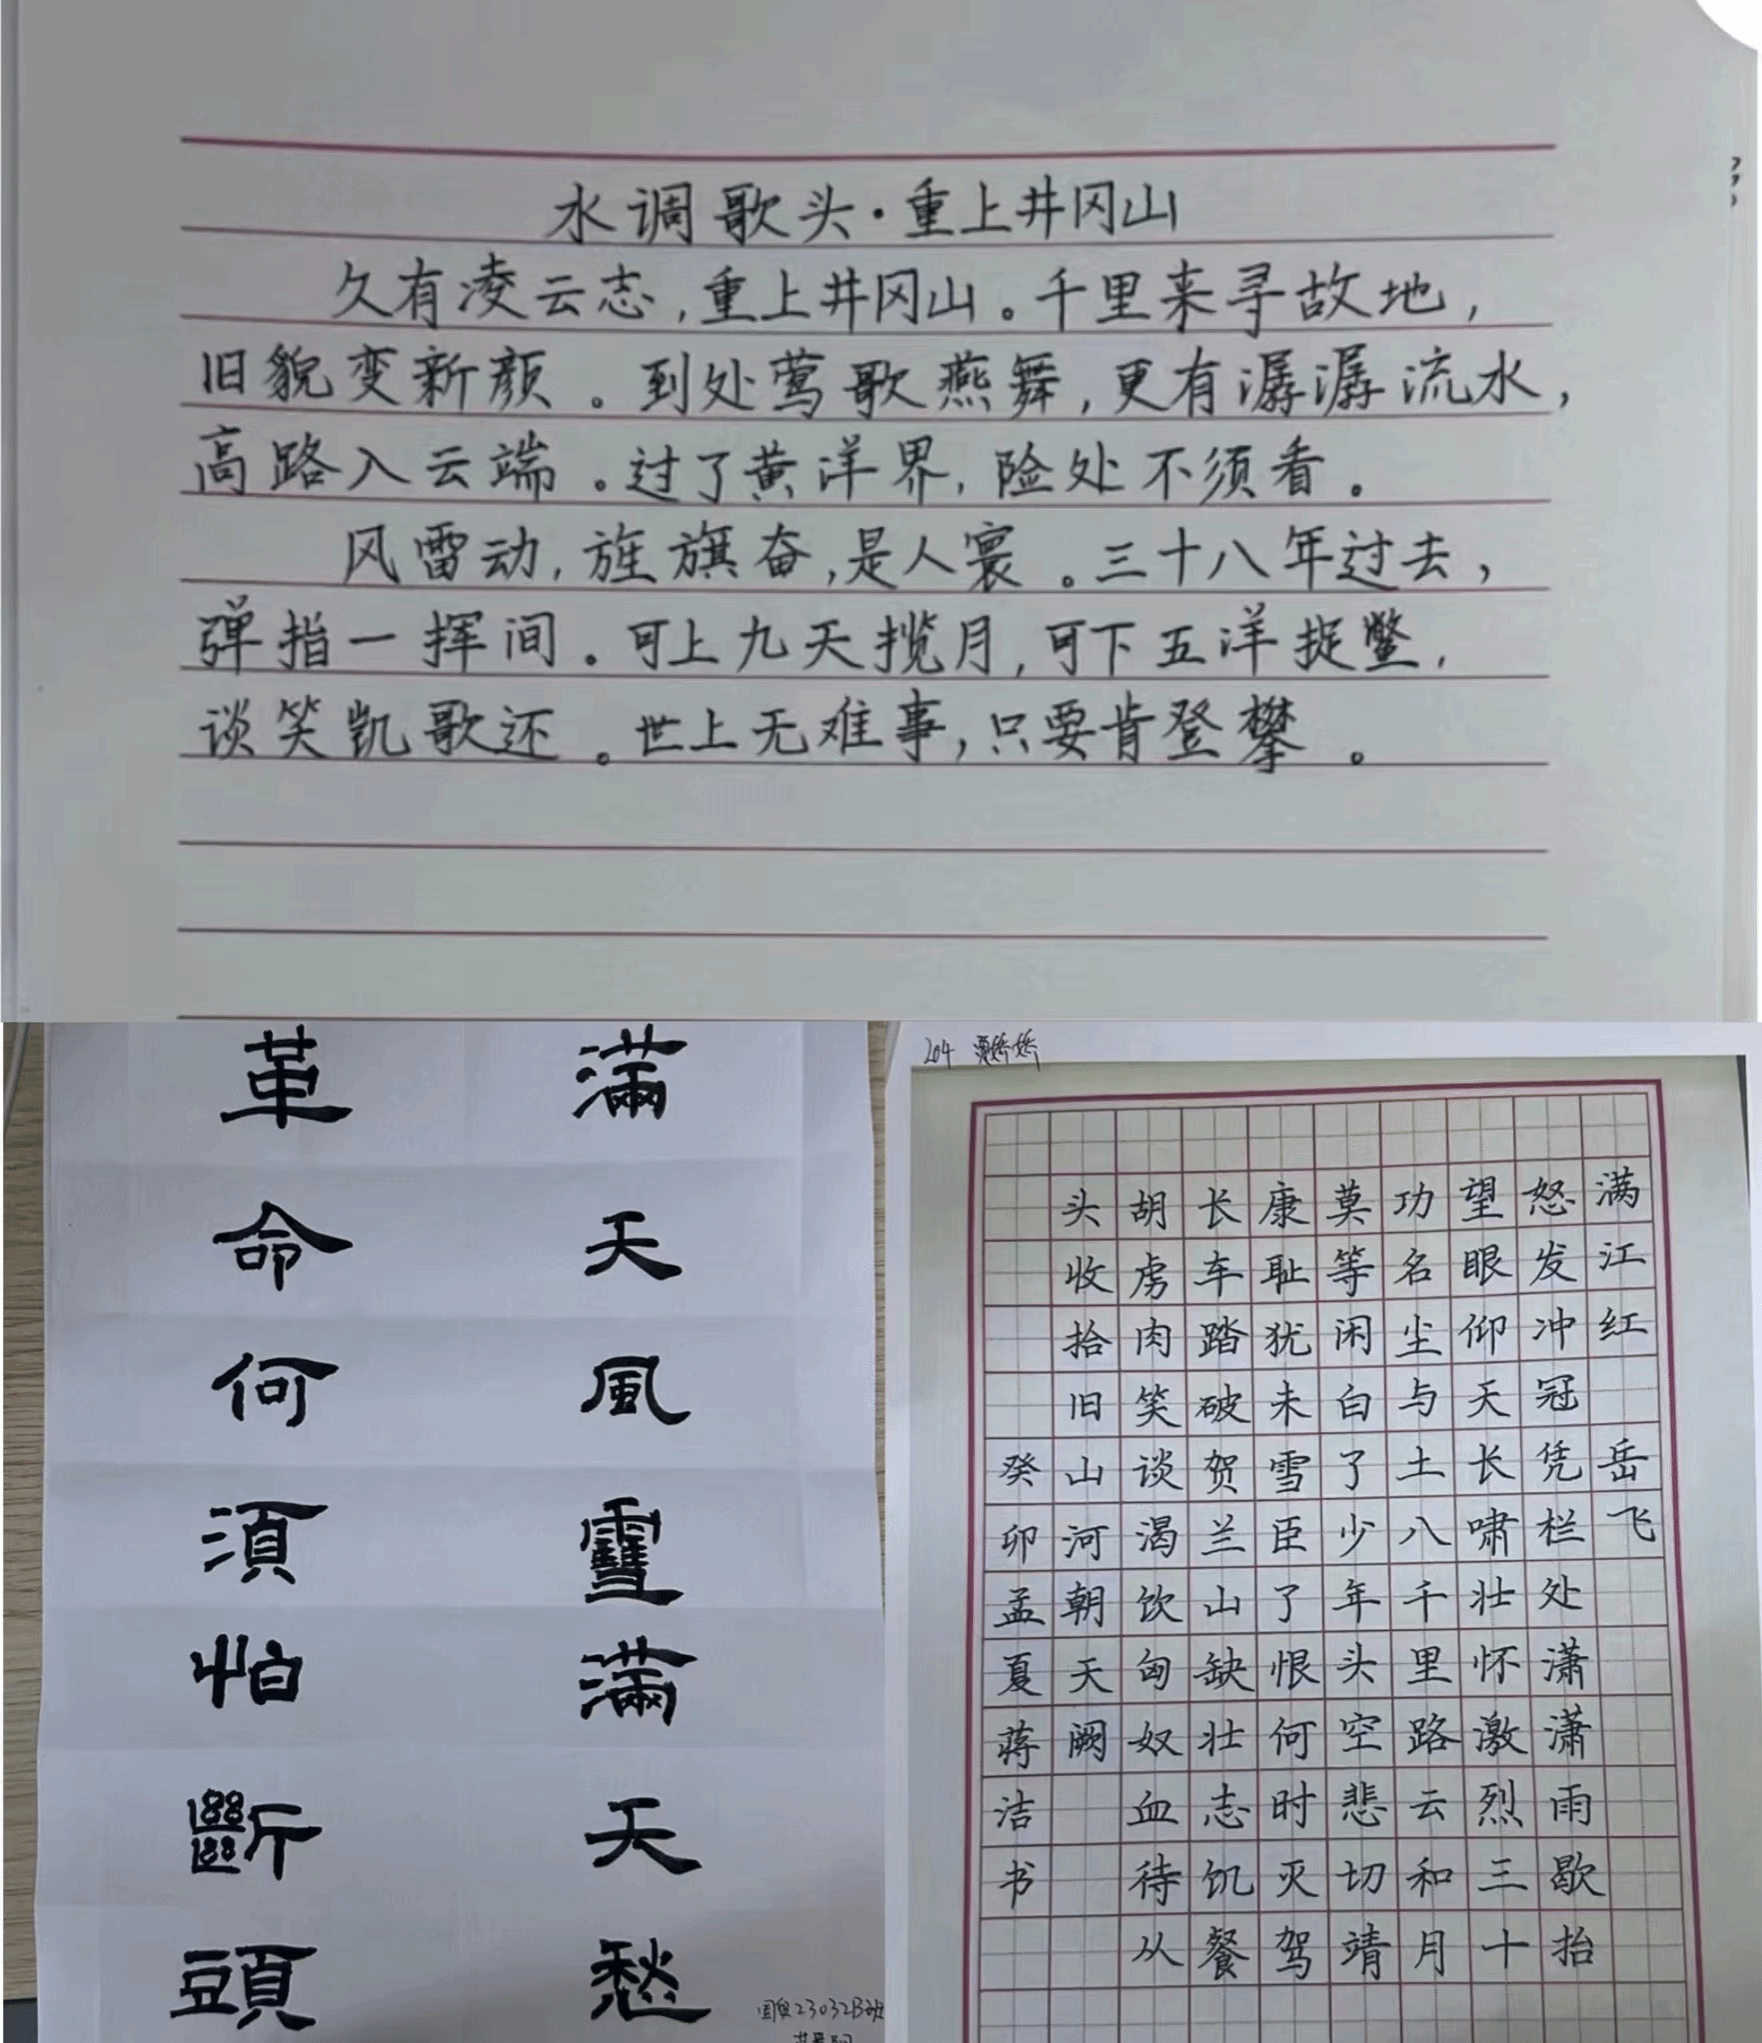 水调歌头·重上井冈山
久有凌云志,重上井冈山。千里来寻故地,
旧貌变新颜。到处莺歌燕舞,更有潺潺流水,
高路入云端。过了黄洋界,险处不须看。
风雷动,旌旗奋,是人寰。三十八年过去,
弹指一挥间。可上九天揽月,可下五洋捉鳖,
谈笑凯歌还。世上无难事,只要肯登攀。
滿天風雪滿天愁
革命何須怕斷頭
国贸23032B班
204
满江红 岳飞
怒发冲冠凭栏处潇潇雨歇抬
望眼仰天长啸壮怀激烈三十
功名尘与土八千里路云和月
莫等闲白了少年头空悲切靖
康耻犹未雪臣了恨何时灭驾
长车踏破贺兰山缺壮志饥餐
胡虏肉笑谈渴饮匈奴血待从
头收拾旧山河朝天阙
癸卯孟夏蒋洁书